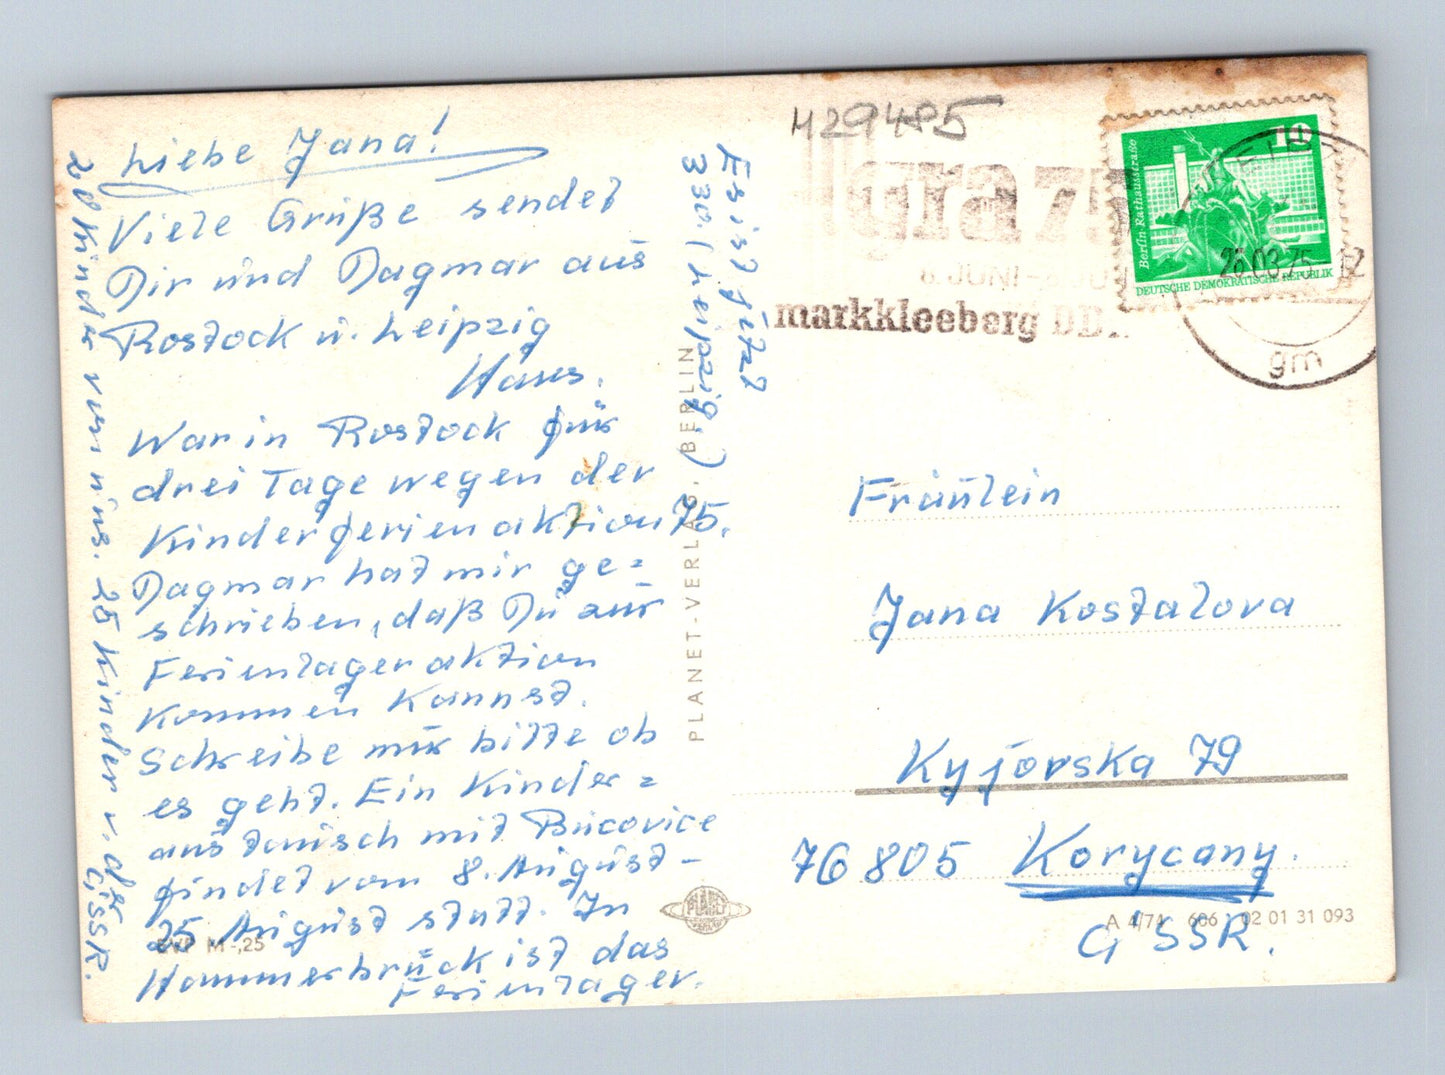 Liebe Jana!
Viele Grüße sendet
Dir und Dagmar aus
Rostock u. Leipzig
Hans.
War in Rostock für
drei Tage wegen der
Kinderferienaktion 75.
Dagmar hat mir ge=
schrieben, daß Du zur
Ferienlageraktion
kommen kannst.
Schreibe mir bitte ob
es geht. Ein Kinder=
austausch mit Bučovice
findet vom 8. August -
25 August statt. In
Hammerbrück ist das
Ferienlager.
Kinder von uns. 25 Kinder v. der ČSSR.
Es ist jetzt
330. (Leipzig.)
EVP M -,25
PLANET-VERLAG, BERLIN
PLANET
H29485
agra 75
8. JUNI-
markkleeberg DD
26.03.75
gm
10
Berlin Rathausstraße
DEUTSCHE DEMOKRATISCHE REPUBLIK
Fräulein
Jana Kostalova
Kyjovska 79
76805 Korycany.
ČSSR.
A 4/74 606 02 01 31 093